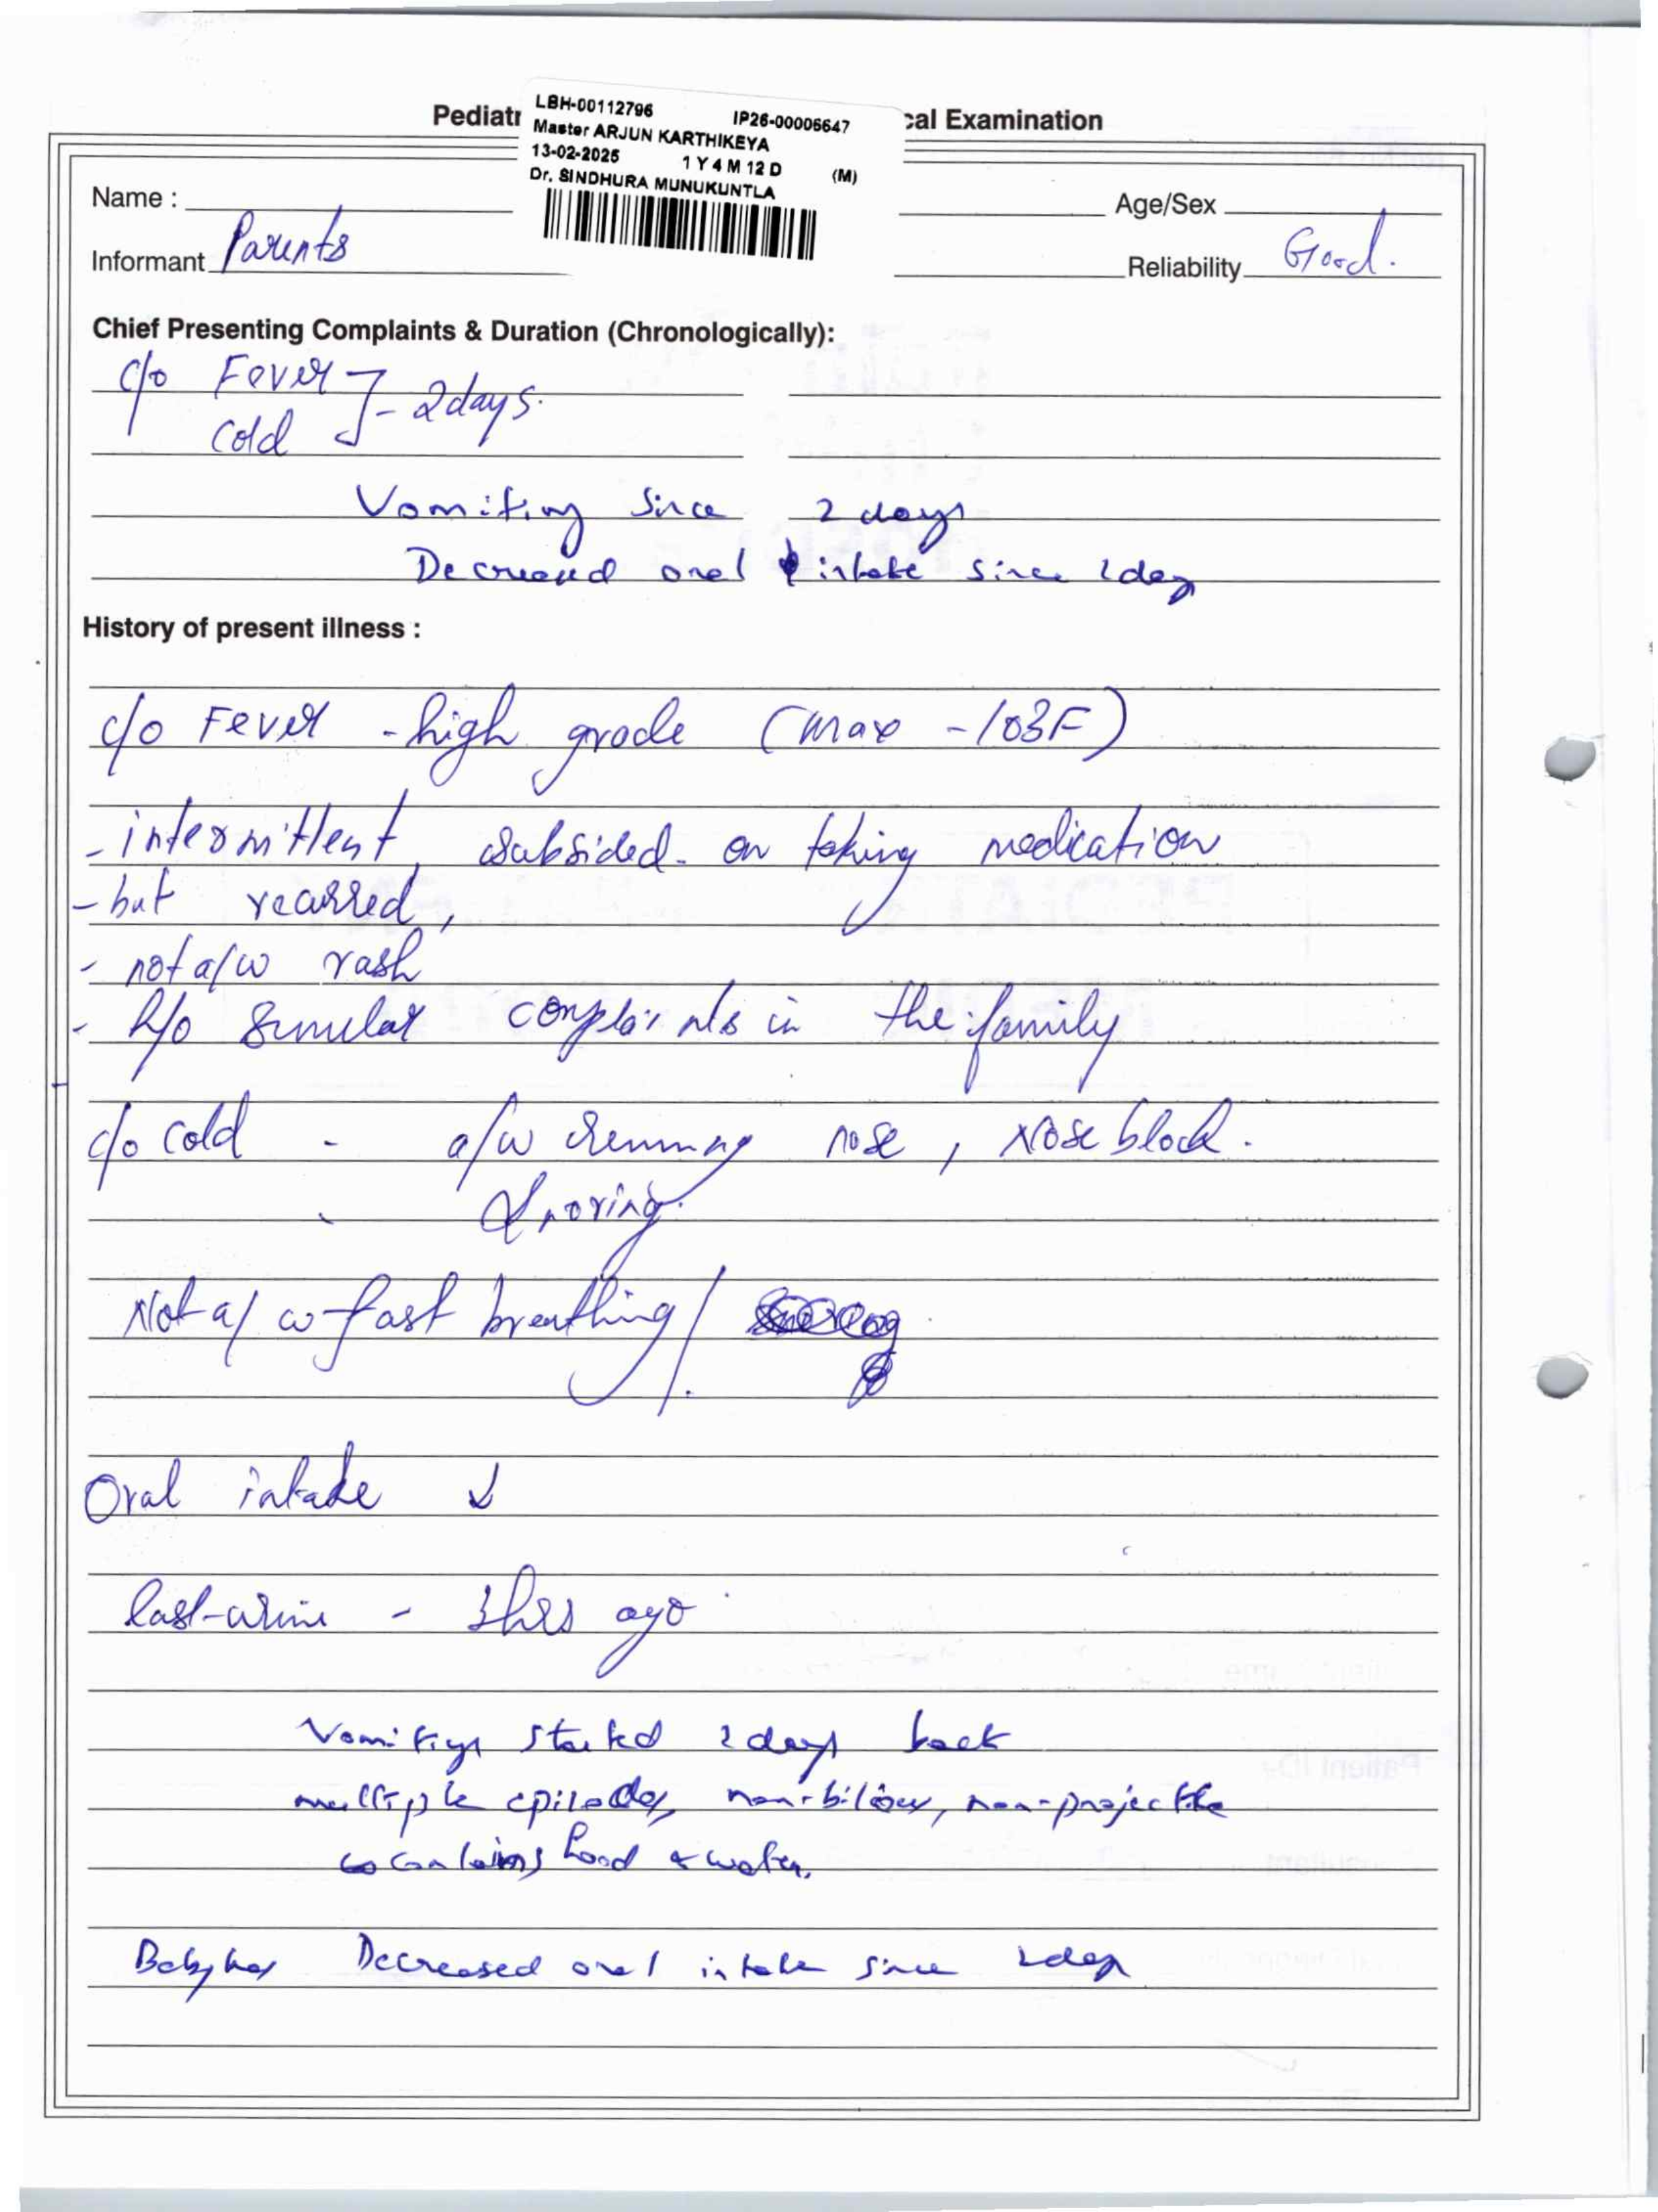 Pediatr
cal Examination
LBH-00112796 IP26-00006647
Master ARJUN KARTHIKEYA
13-02-2025 1 Y 4 M 12 D (M)
Dr. SINDHURA MUNUKUNTLA
Name :
Age/Sex
Informant Parents
Reliability Good.
Chief Presenting Complaints & Duration (Chronologically):
c/o Fever
cold ]- 2days.
Vomiting since 2 days
Decreased oral intake since 1day
History of present illness :
c/o Fever - high grade (max -103F)
- intermittent, subsided on taking medication
- but recurred,
- not a/w rash
- h/o similar complaints in the family
c/o cold - a/w running nose, Nose block.
- snoring.
Not a/w fast breathing/
Oral intake ↓
last urine - 3hrs ago
Vomitings started 2days back
multiple episodes, non-bilious, non-projectile
containing food & water.
Baby has Decreased oral intake since 1day